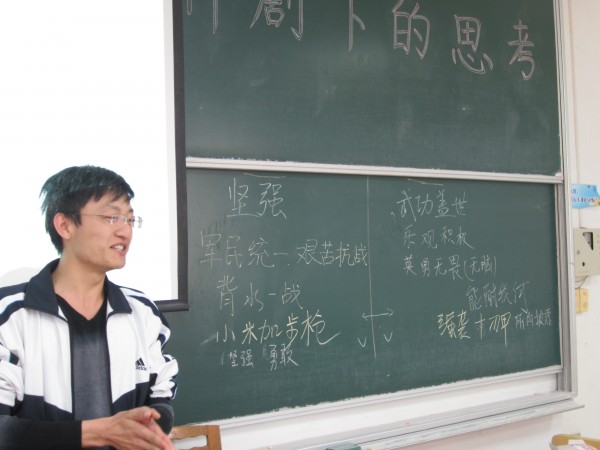 剧下的思考
坚强
军民统一 艰苦抗战
背水一战
小米加步枪
坚强 勇敢
武功盖世
乐观积极
英勇无畏(无脑)
能耐我何
十万甲
adidas